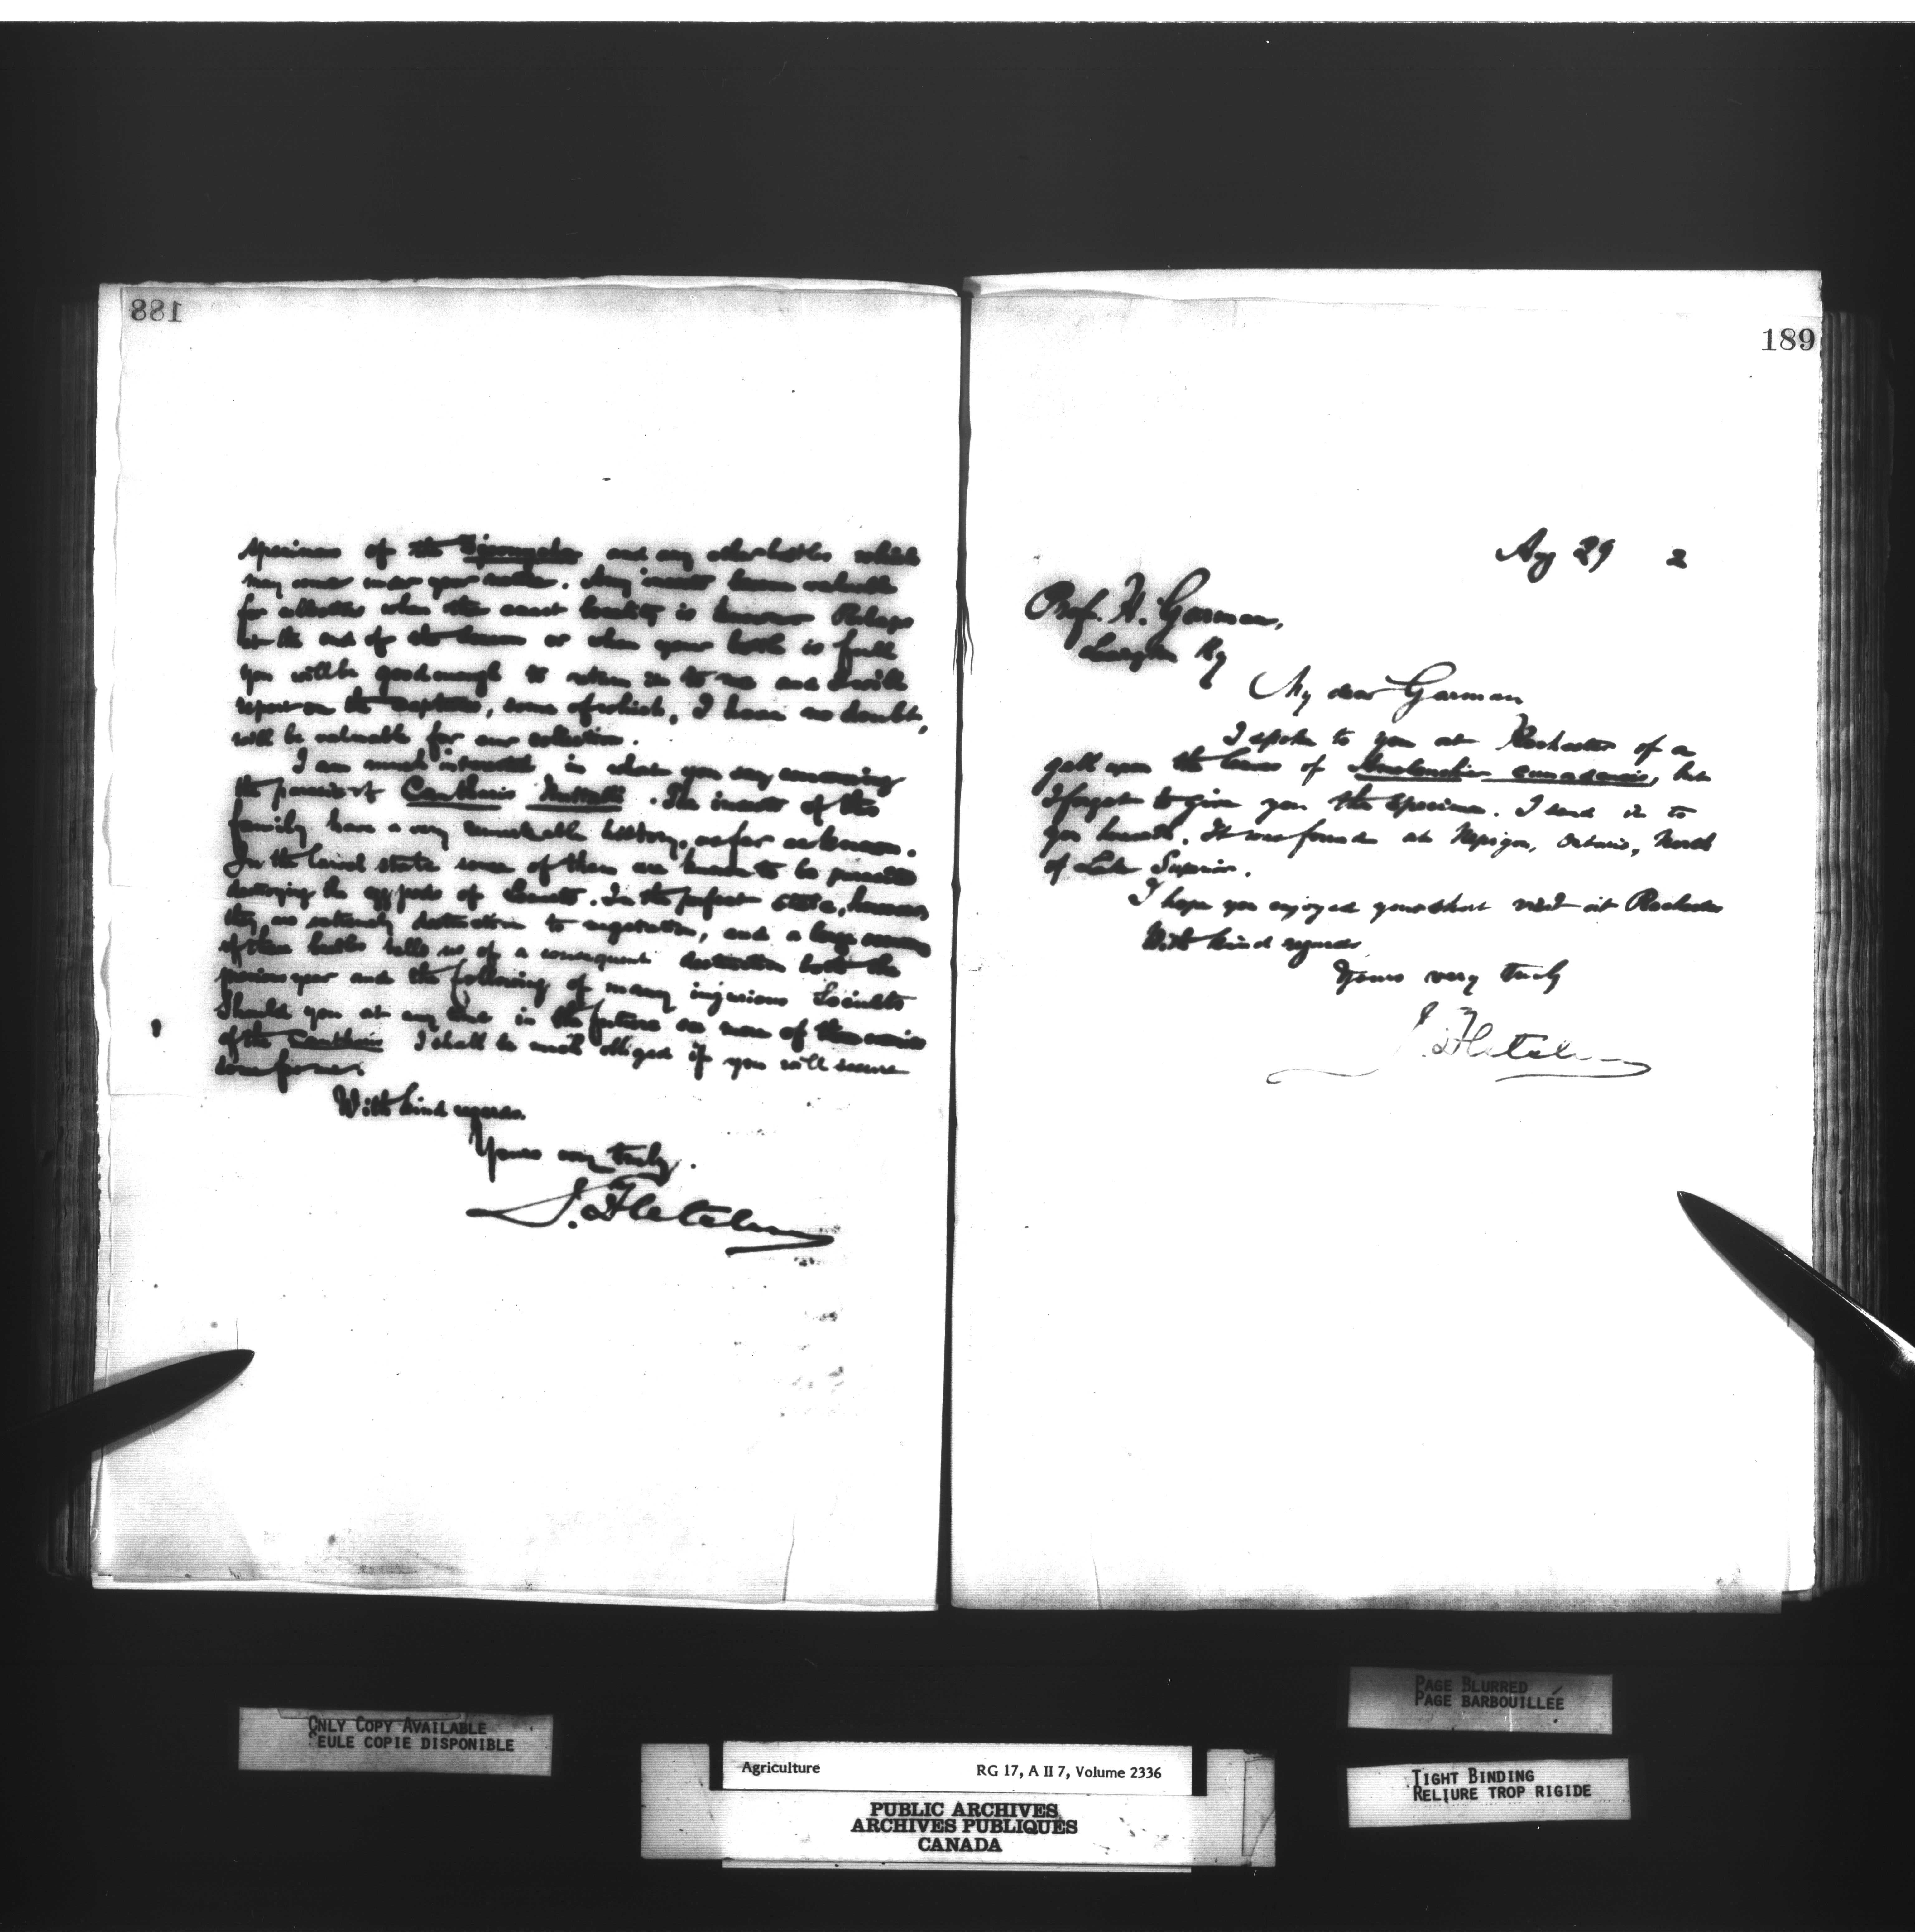 188
specimens of the and any other beetles which
may come under your notice. Any insects become valuable
for collection when the exact locality is known Perhaps
at the end of the season or when your bottle is full
you will be good enough to return it to me and I will
report on the captures, some of which, I have no doubt,
will be valuable for our collection.
I am much interested in what you say concerning
the presence of Cantharis Nuttalli. The insects of this
family have a very remarkable history, as far as known.
In the larval state some of them are known to be parasitic
destroying the egg pods of locusts. In the perfect state, however,
they are extremely destructive to vegetation, and a large
of these beetles tells us of a consequent destruction both the
previous year and the following of many injurious Locusts
Should you at any time in the future see more of these
of the Cantharis I shall be much obliged if you will secure
some for me.
With kind regards.
Yours very truly.
J. Fletcher
189
Aug 29 2
Prof. H. Garman,
Lexington Ky
My dear Garman
I spoke to you at Rochester of a
gall upon the leaves of Amelanchier canadensis, but
I forgot to give you the specimen. I send it to
you herewith. It was found at Nepigon, Ontario, North
of Lake Superior.
I hope you enjoyed your short visit at Rochester
With kind regards
Yours very truly
J. Fletcher
ONLY COPY AVAILABLE
SEULE COPIE DISPONIBLE
PAGE BLURRED
PAGE BARBOUILLÉE
Agriculture RG 17, A II 7, Volume 2336
TIGHT BINDING
RELIURE TROP RIGIDE
PUBLIC ARCHIVES
ARCHIVES PUBLIQUES
CANADA